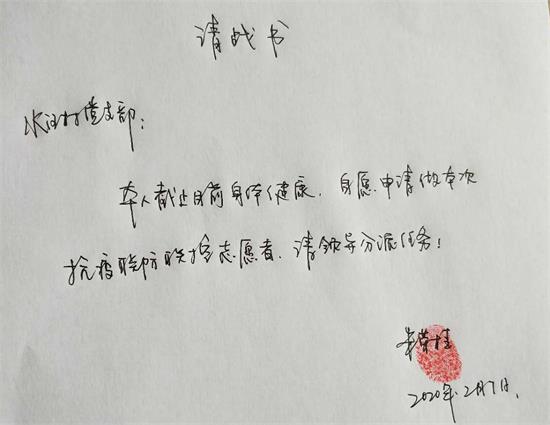 请战书
村党支部：
本人截止目前身体健康，自愿申请做本次
抗疫联防联控志愿者，请领导分派任务！
荣桂
2020年2月1日.